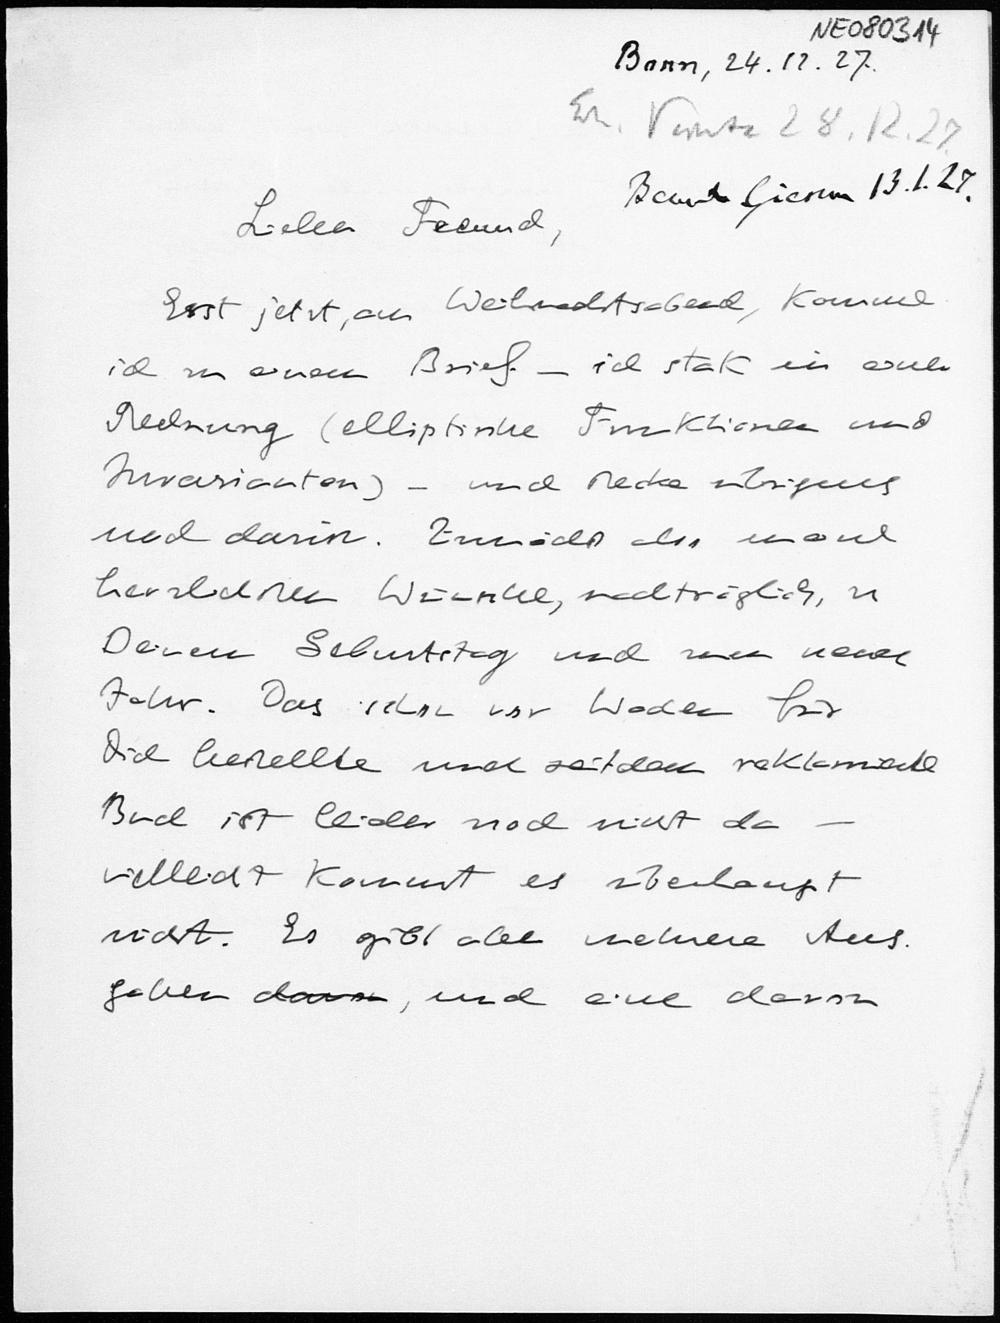 NE080314
Bonn, 24.12.27.
Erh. 28.12.27.
Beantw. Giessen 13.1.27.
Lieber Freund,
Erst jetzt, am Weihnachtsabend, komme
ich zu einem Brief – ich stak in einer
Rechnung (elliptische Funktionen und
Invarianten) – und stecke übrigens
noch darin. Zunächst also meine
herzlichsten Wünsche, nachträglich, zu
Deinem Geburtstag und zum neuen
Jahr. Das schon vor Wochen für
Dich bestellte und seitdem reklamierte
Buch ist leider noch nicht da –
vielleicht kommt es überhaupt
nicht. Es gibt aber mehrere Aus-
gaben davon, und eine davon